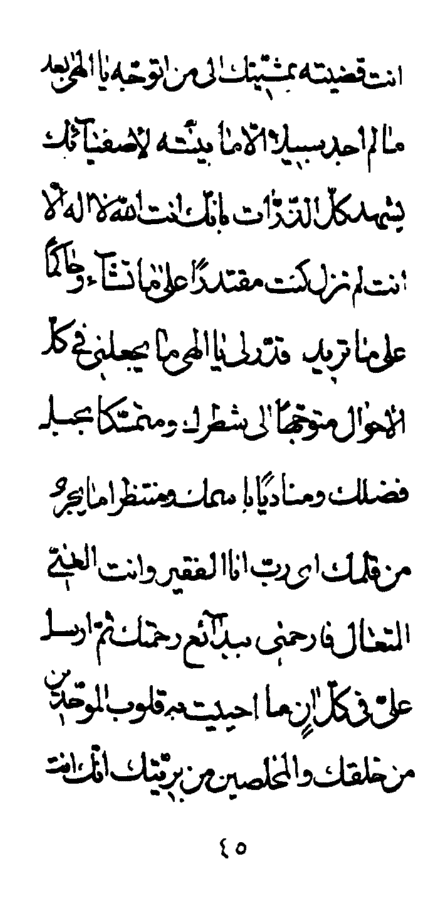 انت قضيته بمشيّتك الى من اتوجّه يا الهى بعد
ما لم اجد سبيلا الّا ما بيّنته لاصفيآئك
يشهد كلّ الذّرّات بانّك انت اللّه لا اله الّا
انت لم تزل كنت مقتدرًا على ما تشآء و حاكمًا
على ما تريد قدّر لى يا الهى ما يجعلنى فى كلّ
الاحوال متوجّهًا الى شطرك و متمسّكا بحبل
فضلك و مناديًا باسمك و منتظرا ما يجرى
من قلمك اى ربّ انا الفقير و انت الغنىّ
المتعال فارحمنى ببدآئع رحمتك ثمّ ارسل
علىّ فى كلّ ان ما احييت به قلوب الموحّدين
من خلقك و المخلصين من بريّتك انّك انت
٤٥